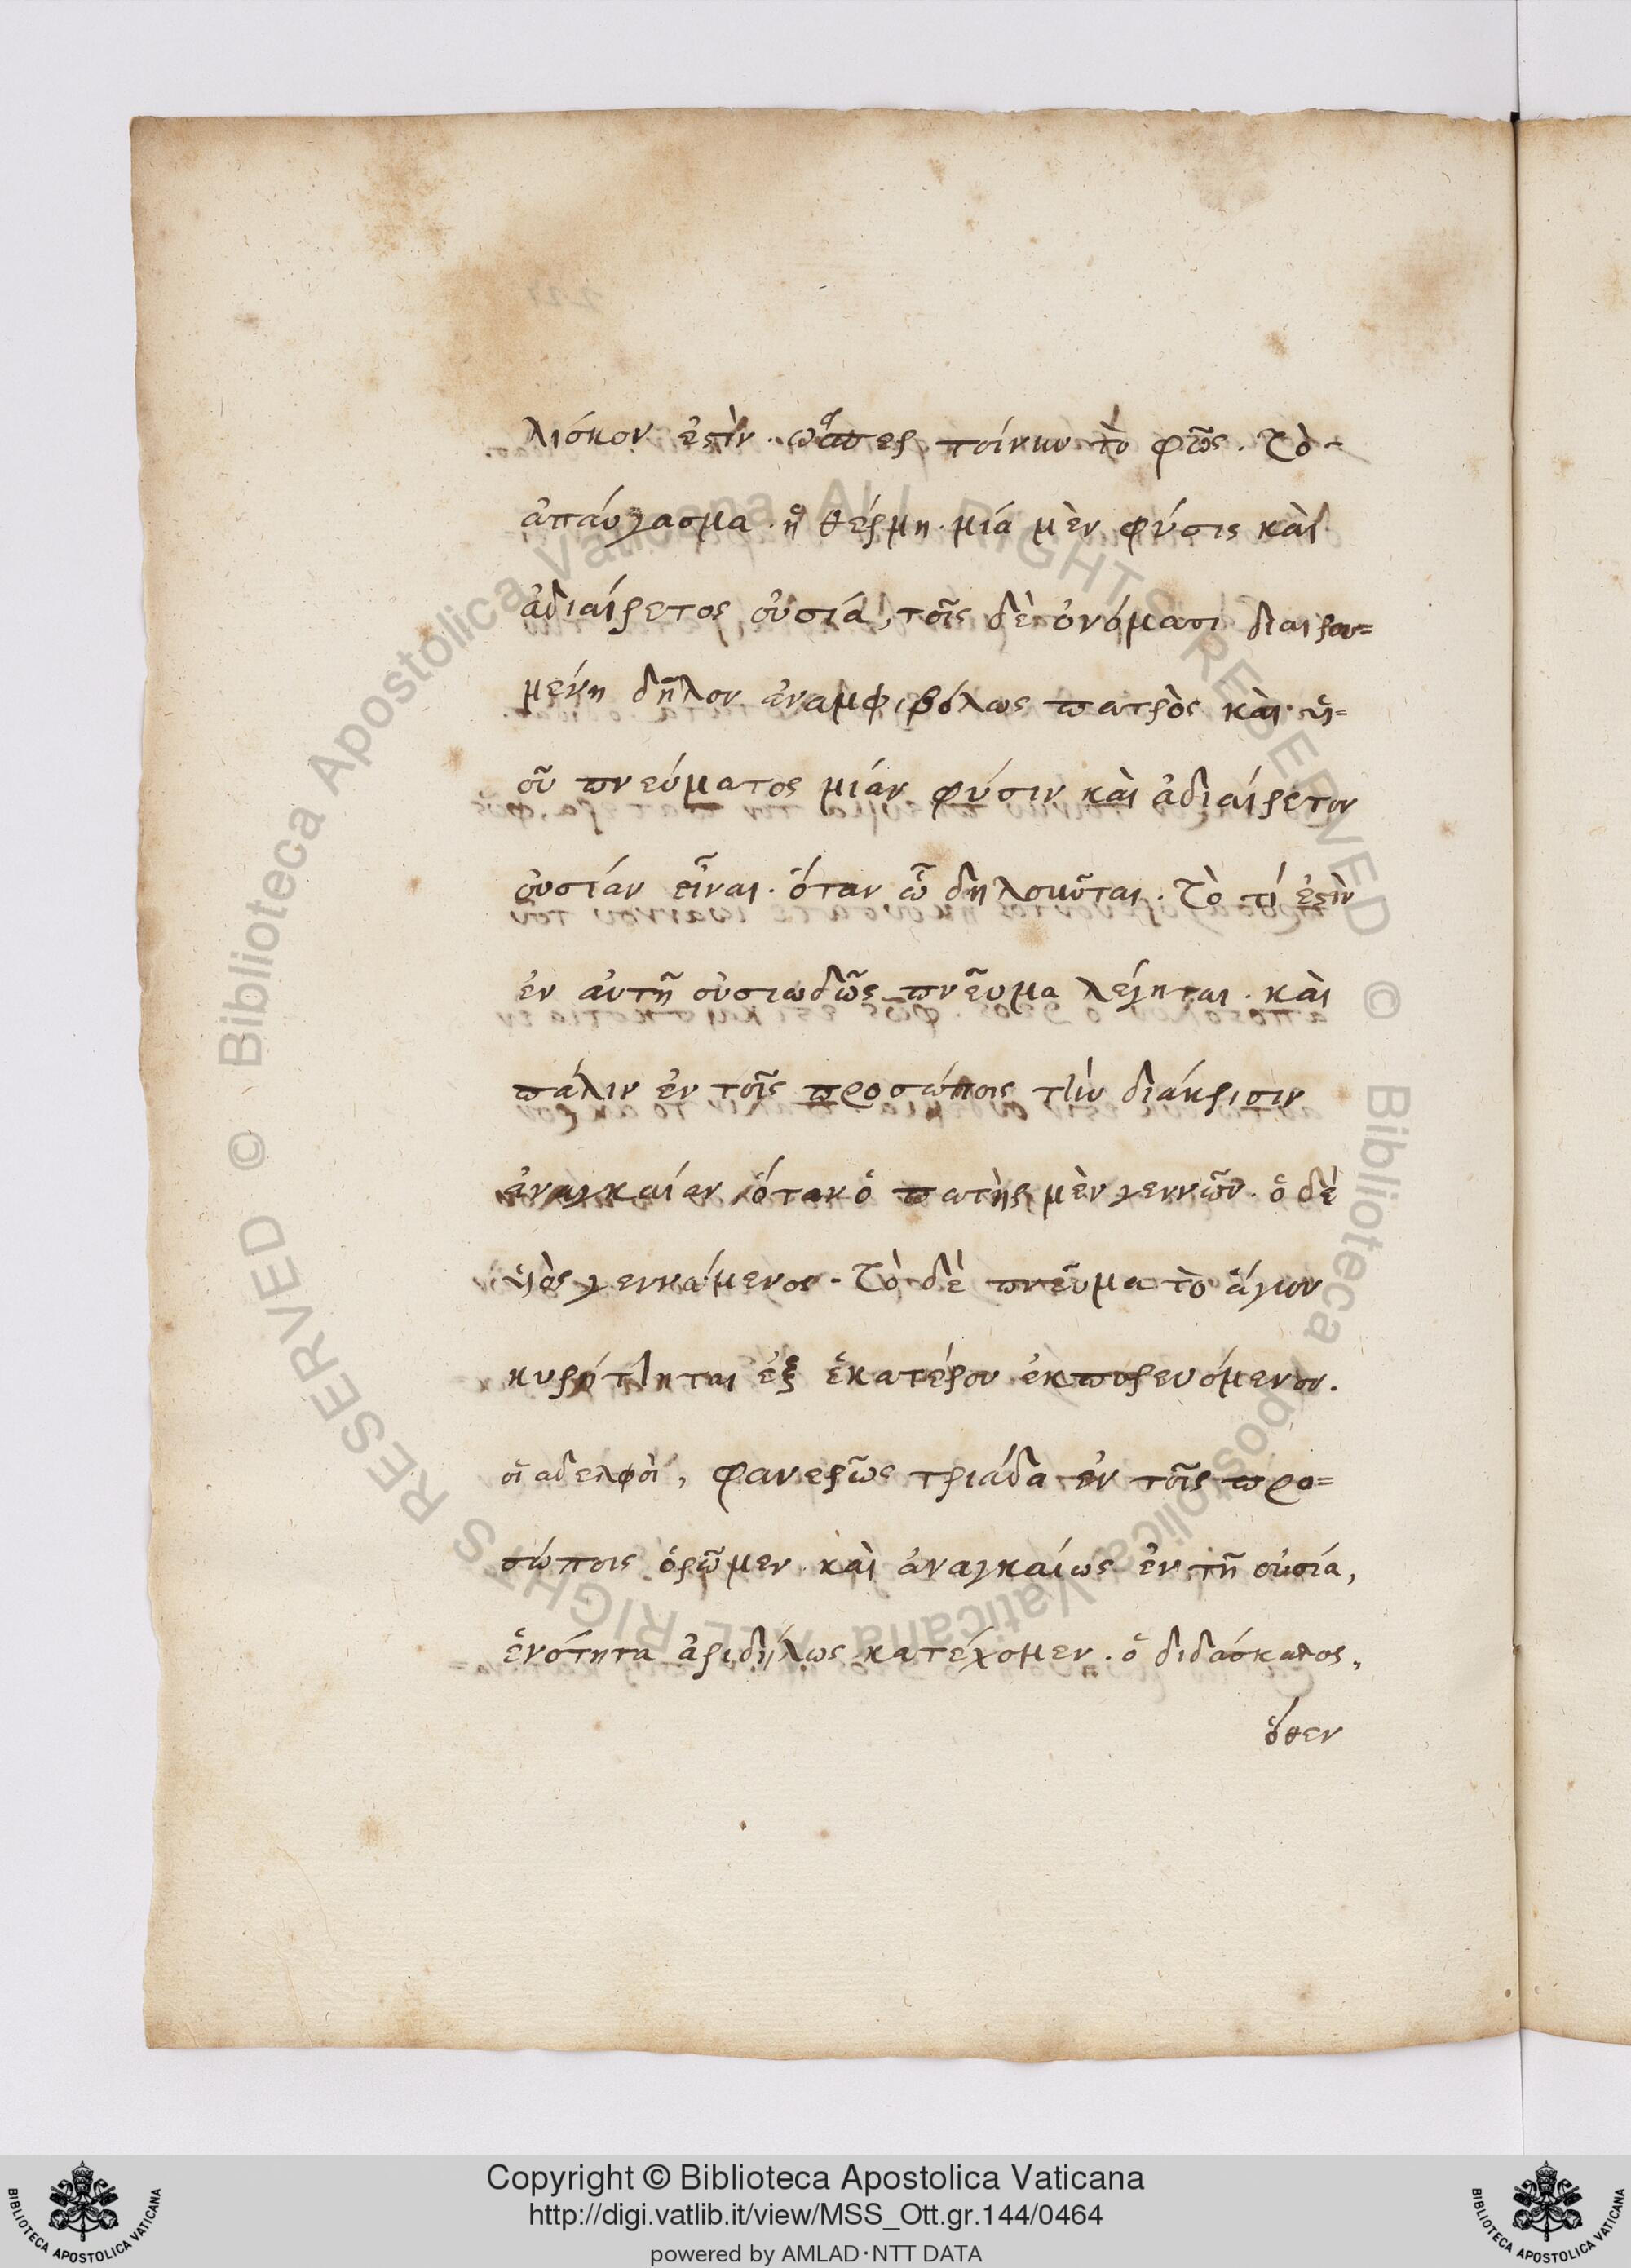 λιόκον ἐστὶν. ὥσπερ τοίνυν τὸ φῶς. τὸ
ἀπάυγασμα. ἡ θέρμη. μία μὲν φύσις καὶ
ἀδιαίρετος οὐσία, τοῖς δὲ ὀνόμασι διαιρου=
μένη δῆλον ἀναμφιβόλως πατρὸς καὶ ὑι=
οῦ πνεύματος μιάν φύσιν καὶ ἀδιαίρετον
οὐσίαν εἶναι. ὅταν ὦ δηλοῦται. τὸ τί ἐστὶν
ἐν αὐτῇ οὐσιωδῶς πνεῦμα λέγηται. καὶ
πάλιν ἐν τοῖς προσώποις τὴν διάκρισιν
ἀναγκαίαν ὅταν ὁ πατὴρ μὲν γεννῶν. ὁ δὲ
ὑιὸς γεννάμενος. τὸ δὲ πνεῦμα τὸ ἅγιον
κυρύττηται ἐξ ἑκατέρου ἐκπορευόμενον.
οἱ αδελφοὶ, φανερῶς τριάδα ἐν τοῖς προ=
σώποις ὁρῶμεν καὶ ἀναγκαίως ἐν τῇ οὐσία,
ἑνότητα ἀριδήλως κατέχομεν. ὁ διδάσκαλος,
ὅθεν
© Biblioteca Apostolica Vaticana ALL RIGHTS RESERVED
© Biblioteca Apostolica Vaticana ALL RIGHTS RESERVED
Copyright © Biblioteca Apostolica Vaticana
http://digi.vatlib.it/view/MSS_Ott.gr.144/0464
powered by AMLAD·NTT DATA
BIBLIOTECA APOSTOLICA VATICANA
BIBLIOTECA APOSTOLICA VATICANA